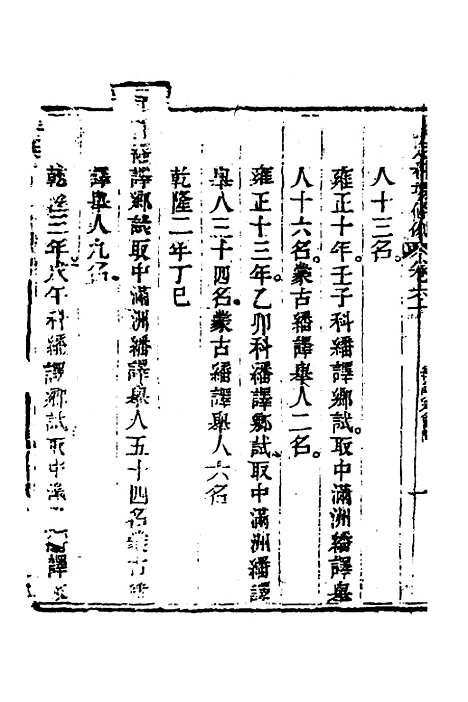 人十三名。
雍正十年。壬子科繙譯鄉試。取中滿洲繙譯舉
人十六名。蒙古繙譯舉人二名。
雍正十三年。乙卯科繙譯鄉試取中滿洲繙譯
舉人三十四名。蒙古繙譯舉人六名
乾隆二年丁巳
繙譯鄉試取中滿洲繙譯舉人五十四名蒙古繙
譯舉人九名。
乾隆三年戊午科繙譯鄉試取中滿